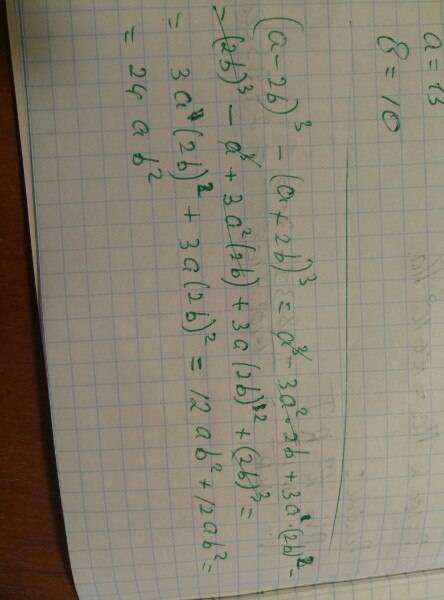 a = 13
b = 10
(a - 2b)³ - (a + 2b)³ = a³ - 3a² · 2b + 3a · (2b)² -
- (2b)³ - a³ + 3a²(2b) + 3a(2b)² + (2b)³ =
= 3a(2b)² + 3a(2b)² = 12ab² + 12ab² =
= 24ab²